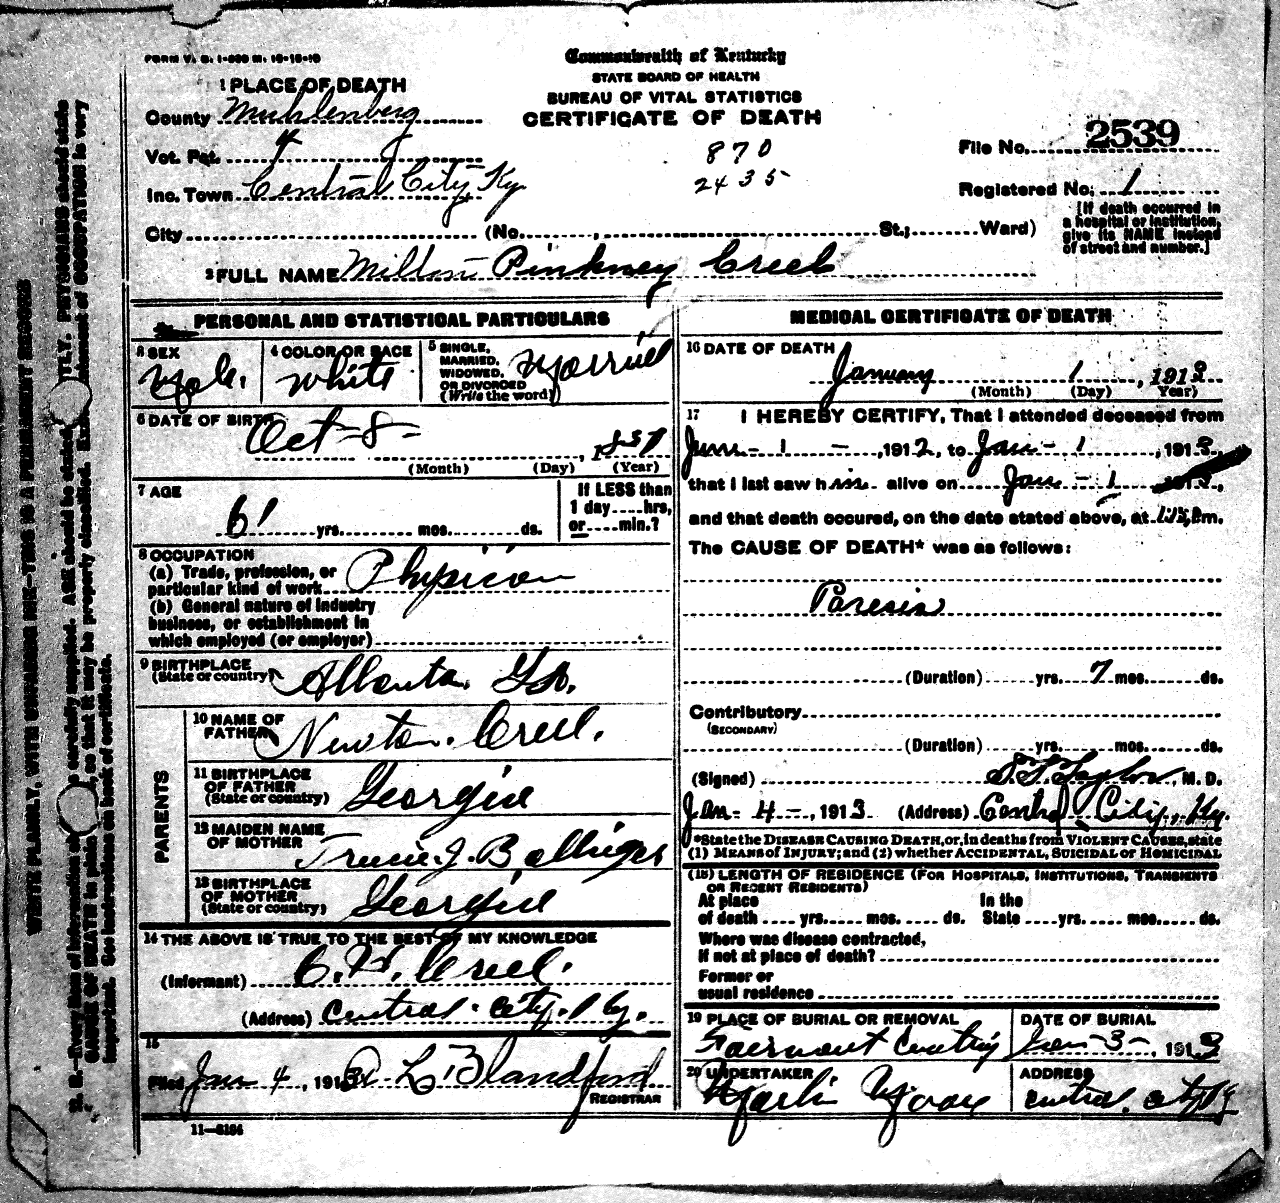 FORM V. S. 1-600 M. 10-18-10
Commonwealth of Kentucky
STATE BOARD OF HEALTH
BUREAU OF VITAL STATISTICS
CERTIFICATE OF DEATH
1 PLACE OF DEATH
County Muhlenberg
Vot. Pct. 4
Inc. Town Central City Ky.
City (No. , St.; Ward)
870
2435
File No. 2539
Registered No. 1
[If death occurred in
a hospital or institution,
give its NAME instead
of street and number.]
2 FULL NAME Milton Pinkney Creel
PERSONAL AND STATISTICAL PARTICULARS
3 SEX
Male.
4 COLOR OR RACE
White
5 SINGLE,
MARRIED,
WIDOWED,
OR DIVORCED
(Write the word)
Married
6 DATE OF BIRTH
Oct-8- , 1851
(Month) (Day) (Year)
7 AGE
61 yrs. mos. ds.
If LESS than
1 day hrs,
or min.?
8 OCCUPATION
(a) Trade, profession, or
particular kind of work Physician
(b) General nature of industry
business, or establishment in
which employed (or employer)
9 BIRTHPLACE
(State or country) Atlanta. Ga.
PARENTS
10 NAME OF
FATHER Newton. Creel.
11 BIRTHPLACE
OF FATHER
(State or country) Georgia
12 MAIDEN NAME
OF MOTHER J. Bollinger
13 BIRTHPLACE
OF MOTHER
(State or country) Georgia
14 THE ABOVE IS TRUE TO THE BEST OF MY KNOWLEDGE
(Informant) C. H. Creel.
(Address) Central. City. Ky.
15
Filed Jan 4 , 1913 L Blandford
REGISTRAR
11-3184
MEDICAL CERTIFICATE OF DEATH
16 DATE OF DEATH
January 1 , 1913
(Month) (Day) Year)
17 I HEREBY CERTIFY, That I attended deceased from
June - 1 - , 1912, to Jan - 1 , 1913,
that I last saw him alive on Jan - 1 1913,
and that death occured, on the date stated above, at m.
The CAUSE OF DEATH* was as follows:
Paresis
(Duration) yrs. 7 mos. ds.
Contributory
(SECONDARY)
(Duration) yrs. mos. ds.
(Signed) Taylor, M. D.
Jan - 4 - , 1913 (Address) Central City, Ky.
*State the DISEASE CAUSING DEATH, or, in deaths from VIOLENT CAUSES, state
(1) MEANS of INJURY; and (2) whether ACCIDENTAL, SUICIDAL or HOMICIDAL
(18) LENGTH OF RESIDENCE (FOR HOSPITALS, INSTITUTIONS, TRANSIENTS
OR RECENT RESIDENTS)
At place In the
of death yrs. mos. ds. State yrs. mos. ds.
Where was disease contracted,
If not at place of death?
Former or
usual residence
19 PLACE OF BURIAL OR REMOVAL
Fairmont
DATE OF BURIAL
Jan-3-, 1913
20 UNDERTAKER
Martin Moore
ADDRESS
Central. City Ky
WRITE PLAINLY, WITH UNFADING INK—THIS IS A PERMANENT RECORD
N. B.—Every item of information carefully supplied. AGE should be stated TLY. PHYSICIANS should state
CAUSE OF DEATH in plain , so that it may be properly classified. Ex of OCCUPATION is very
important. See instructions on back of certificate.